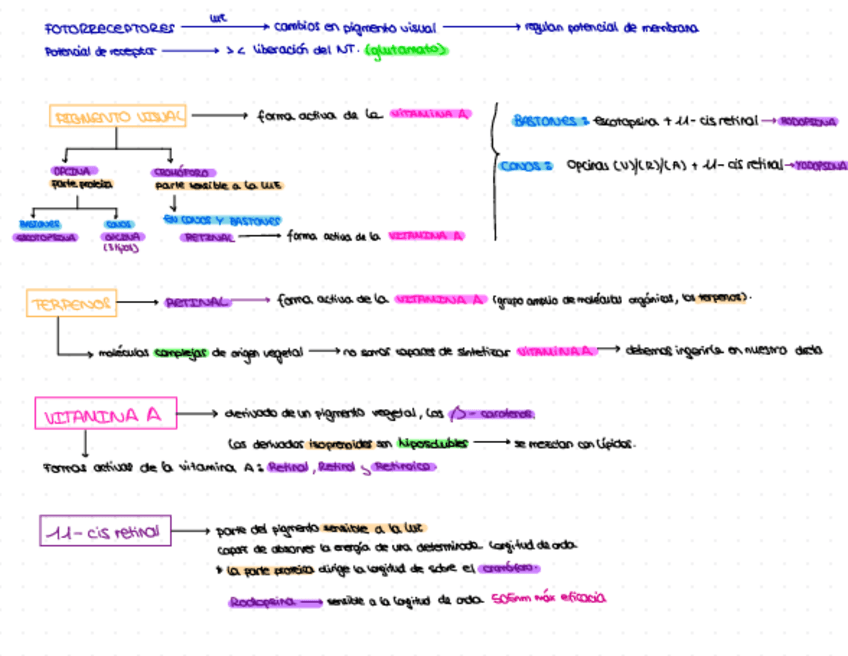 luz
FOTORRECEPTORES → cambios en pigmento visual → regulan potencial de membrana
Potencial de receptor → >< liberación del NT. (glutamato)
PIGMENTO VISUAL → forma activa de la VITAMINA A
BASTONES: escotopsina + 11-cis retinal → RODOPSINA
CONOS: Opcinas (V)/(R)/(A) + 11-cis retinal → YODOPSINA
OPCINA
parte proteica
CROMÓFORO
parte sensible a la luz
BASTONES
ESCOTOPSINA
CONOS
OPCINA
(3 tipos)
EN CONOS Y BASTONES
RETINAL → forma activa de la VITAMINA A
TERPENOS → RETINAL → forma activa de la VITAMINA A (grupo amplio de moléculas orgánicas, los terpenos).
moléculas complejas de origen vegetal → no somos capaces de sintetizar VITAMINA A → debemos ingerirla en nuestra dieta
VITAMINA A → derivado de un pigmento vegetal, los β-carotenos
Los derivados isoprenoides son liposolubles → se mezclan con lípidos.
Formas activas de la vitamina A: Retinal, Retinol y Retinoico
11-cis retinal → parte del pigmento sensible a la luz
capaz de absorver la energía de una determinada longitud de onda
* La parte proteica dirige la longitud de sobre el cromóforo.
Rodopsina → sensible a la longitud de onda 505nm máx eficacia